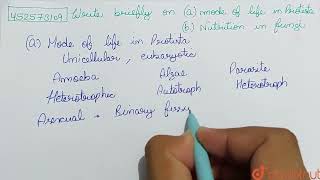 452573109 Write briefly on (a) mode of life in Protista
(b) Nutrition in fungi
(a) Mode of life in Protista
Unicellular, eukaryotic
Amoeba Algae Parasite
Heterotrophic Autotroph Heterotroph
Asexual → Binary fiss